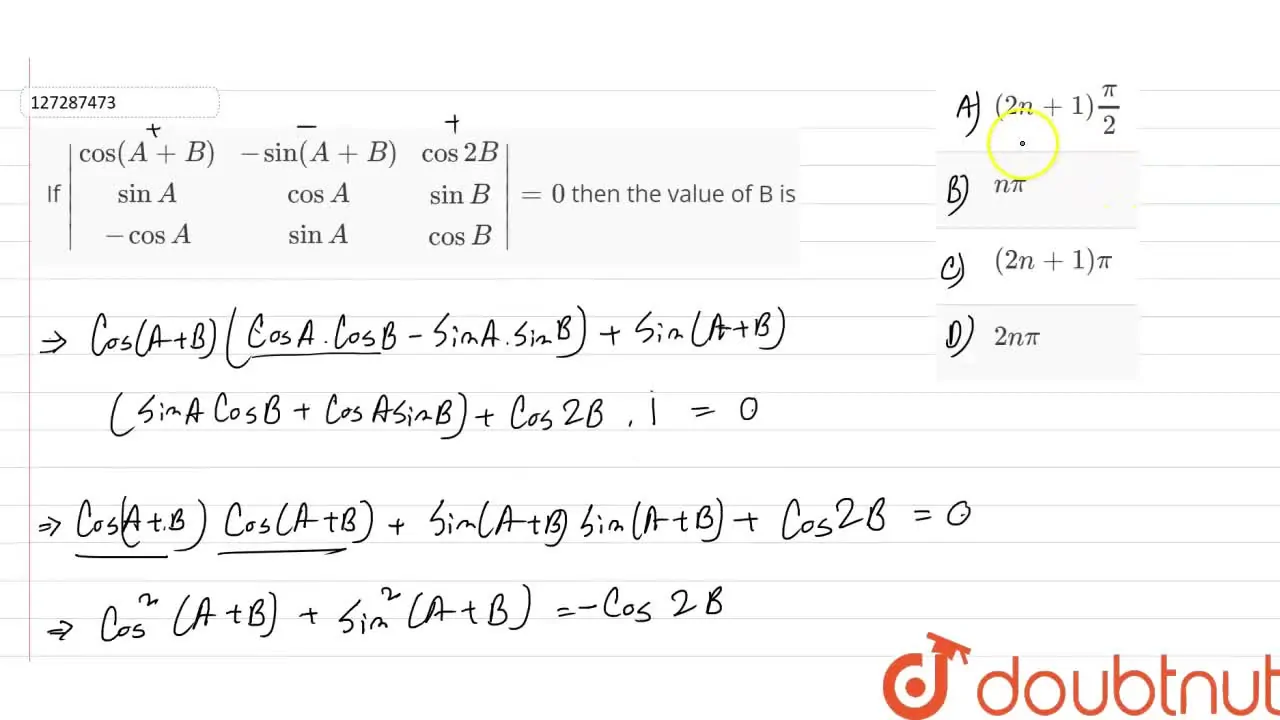 127287473
+ − +
If | cos(A + B) − sin(A + B) cos 2B |
| sin A cos A sin B | = 0 then the value of B is
| − cos A sin A cos B |
A) (2n + 1) π/2
B) nπ
C) (2n + 1)π
D) 2nπ
⇒ Cos(A+B) (CosA . CosB − SinA . SinB) + Sin(A+B)
(SinA CosB + CosA SinB) + Cos2B . 1 = 0
⇒ Cos(A+B) Cos(A+B) + Sin(A+B) Sin(A+B) + Cos2B = 0
⇒ Cos² (A+B) + Sin² (A+B) = − Cos 2B
doubtnut